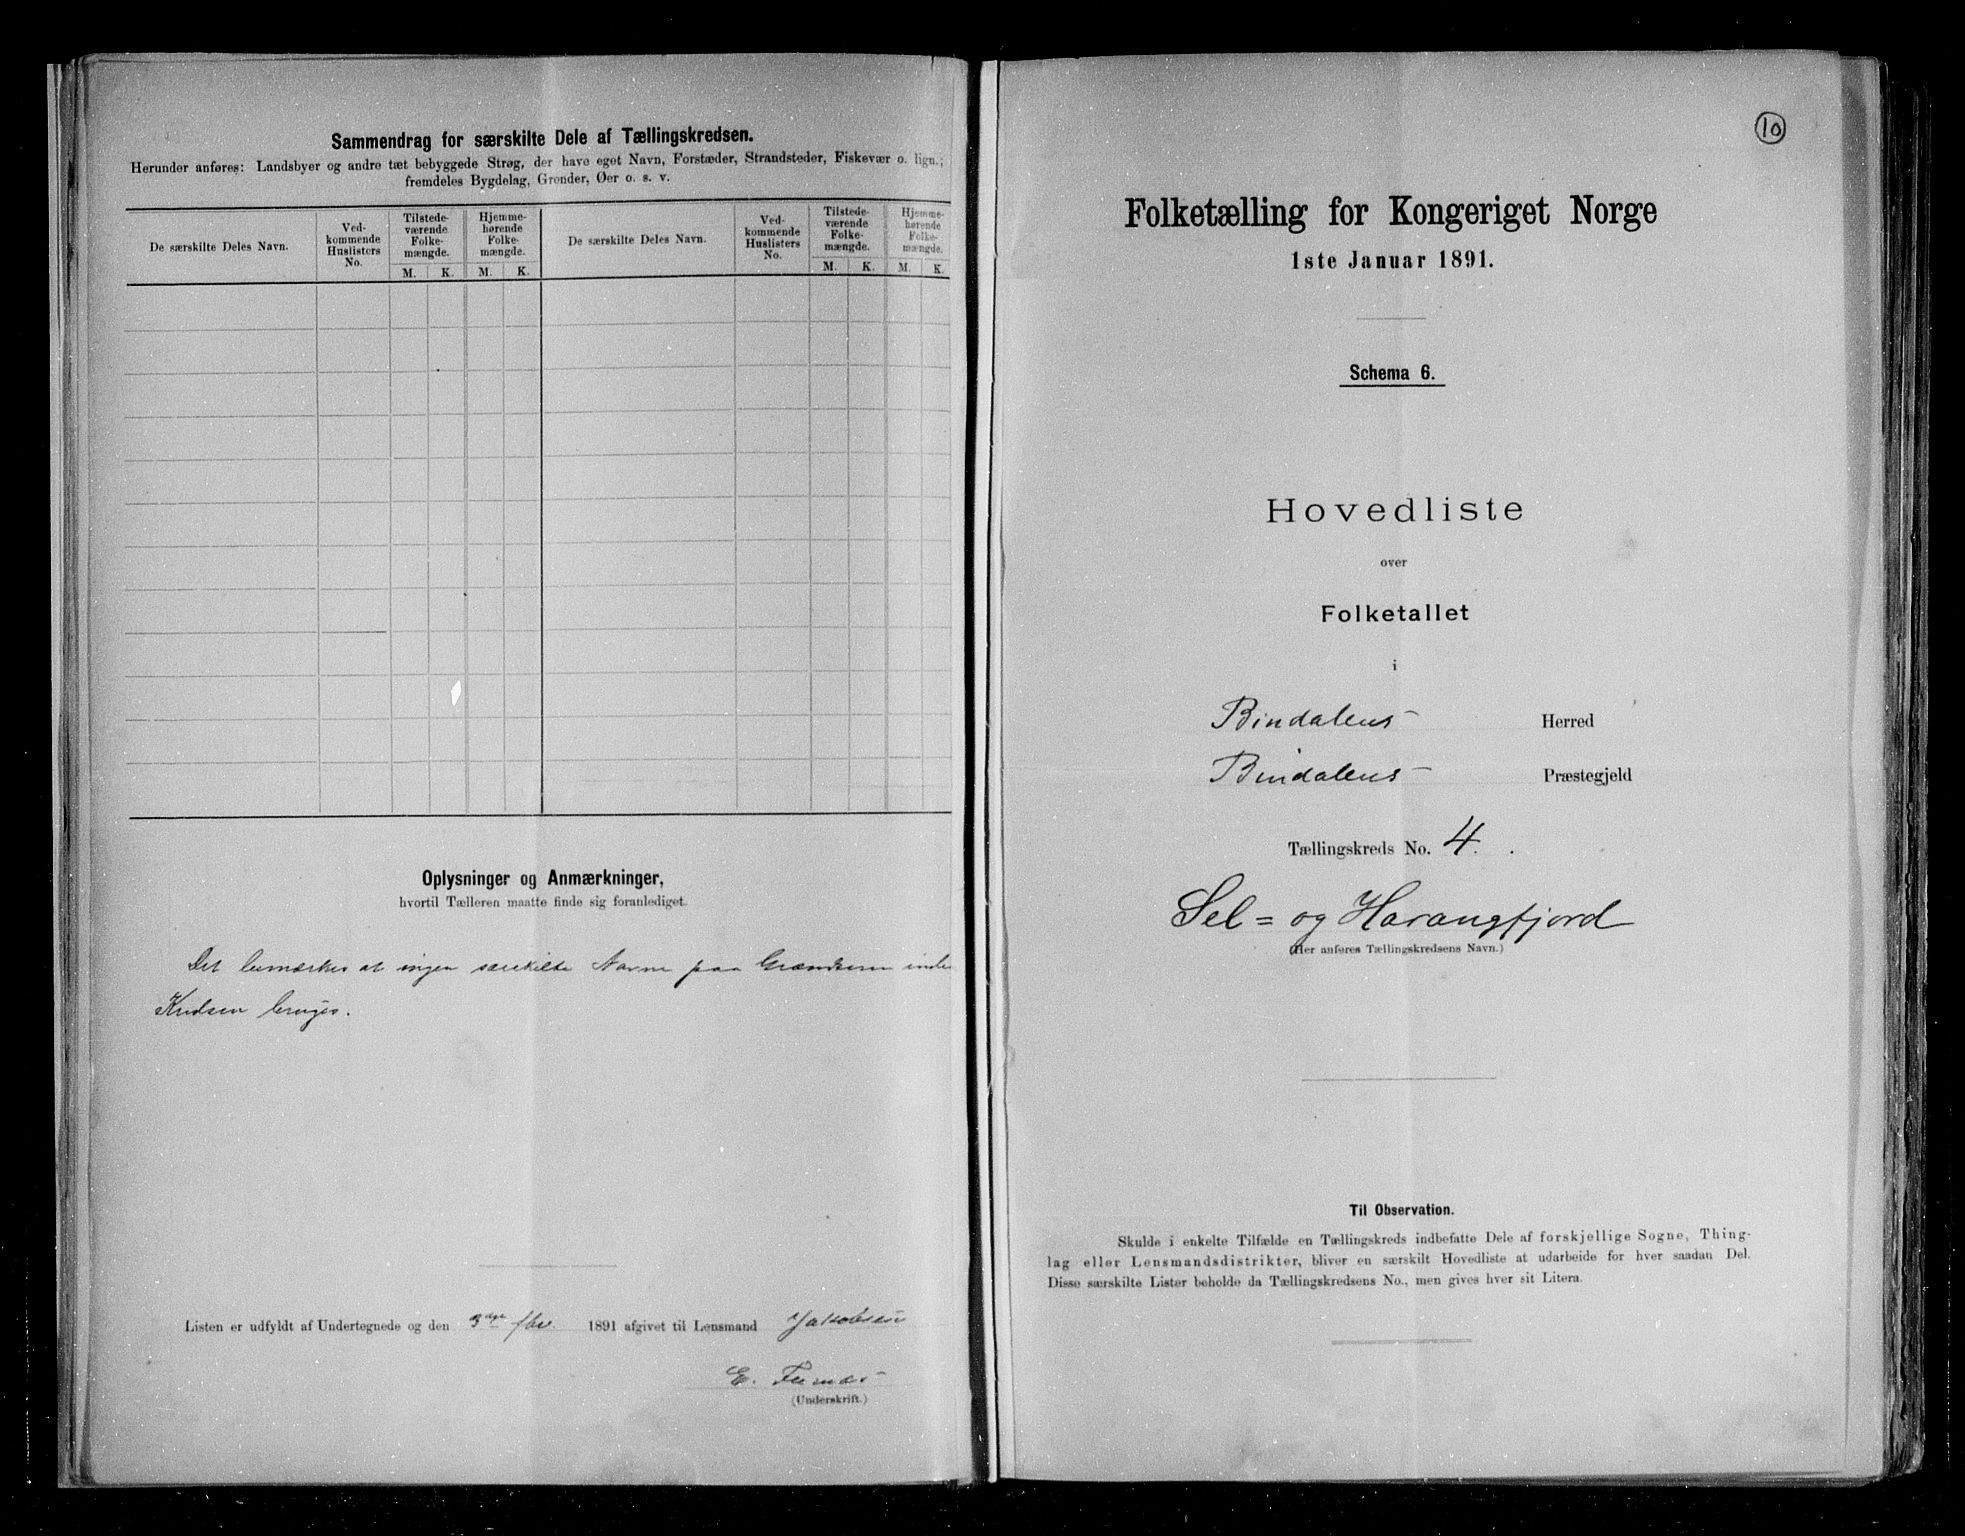 Sammendrag for særskilte Dele af Tællingskredsen.
Herunder anføres: Landsbyer og andre tæt bebyggede Strøg, der have eget Navn, Forstæder, Strandsteder, Fiskevær o. lign.;
fremdeles Bygdelag, Grender, Øer o. s. v.
De særskilte Deles Navn.
Ved-
kommende
Huslisters
No.
Tilstede-
værende
Folke-
mængde.
M. K.
Hjemme-
hørende
Folke-
mængde.
M. K.
De særskilte Deles Navn.
Ved-
kommende
Huslisters
No.
Tilstede-
værende
Folke-
mængde.
M. K.
Hjemme-
hørende
Folke-
mængde.
M. K.
Oplysninger og Anmærkninger,
hvortil Tælleren maatte finde sig foranlediget.
Det bemærkes at ingen særskilte Navne paa
Kredsen bruges.
Listen er udfyldt af Undertegnede og den 3die 1891 afgivet til Lensmand Jakobsen
E.
(Underskrift.)
10
Folketælling for Kongeriget Norge
1ste Januar 1891.
Schema 6.
Hovedliste
over
Folketallet
i
Bindalens Herred
Bindalens Præstegjeld
Tællingskreds No. 4.
Sel= og Harangfjord
(Her anføres Tællingskredsens Navn.)
Til Observation.
Skulde i enkelte Tilfælde en Tællingskreds indbefatte Dele af forskjellige Sogne, Thing-
lag eller Lensmandsdistrikter, bliver en særskilt Hovedliste at udarbeide for hver saadan Del.
Disse særskilte Lister beholde da Tællingskredsens No., men gives hver sit Litera.